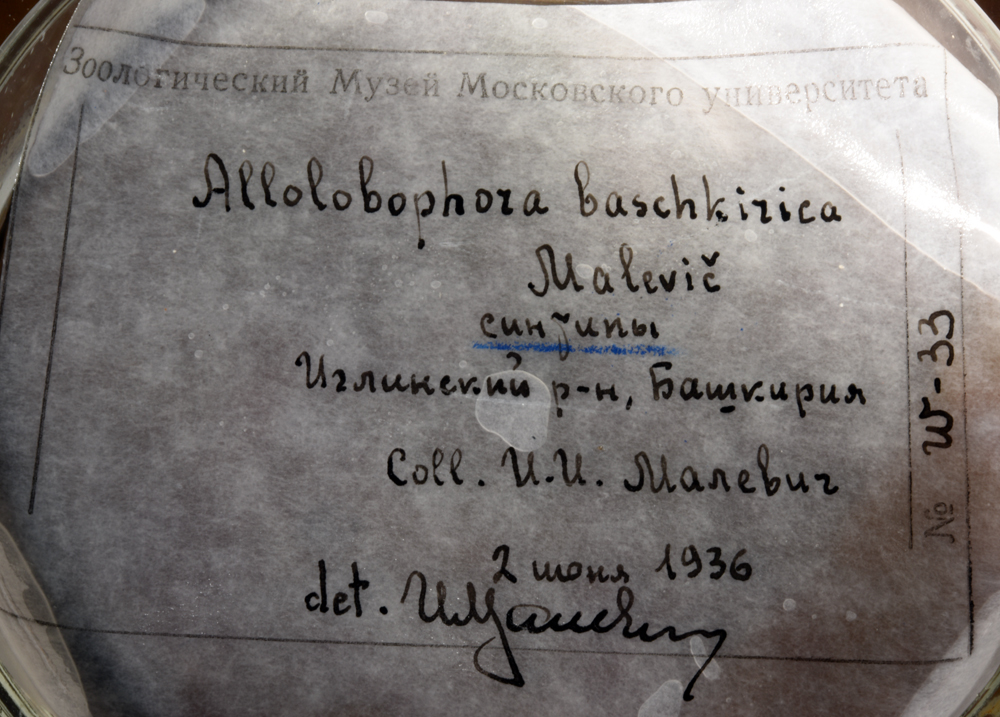 Зоологический Музей Московского университета
Allolobophora baschkirica
Malevič
синтипы
Иглинский р-н, Башкирия
Coll. И.И. Малевич
2 июня 1936
det. ИМалевич
№ W-33